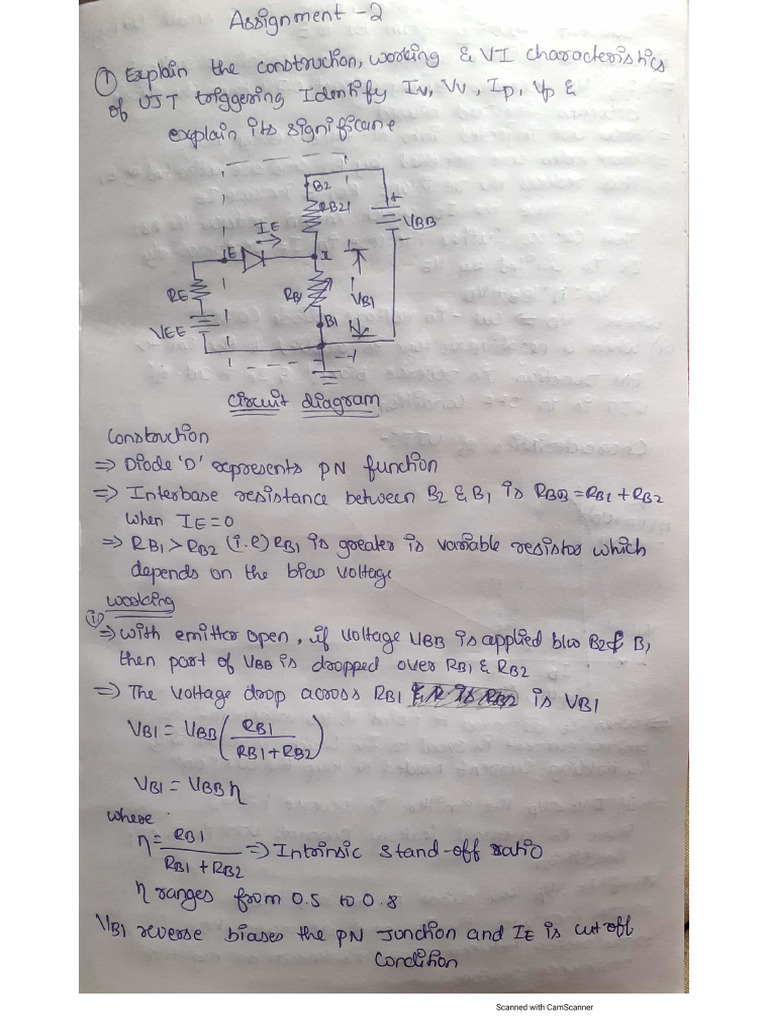 Assignment -2
① Explain the construction, working & VI characteristics
of UJT triggering Identify Iv, Vv, Ip, Vp &
explain its significane
B2
RB21
+
VBB
-
IE
E
x
RE
RB1
VB1
B1
VEE
circuit diagram
Construction
=> Diode 'D' represents PN function
=> Interbase resistance between B2 & B1 is RBB = RB1 + RB2
when IE=0
=> RB1 > RB2 (i.e) RB1 is greater is variable resistor which
depends on the bias voltage
working
(i)
=> with emitter open, if voltage VBB is applied b/w B2 & B1
then part of VBB is dropped over RB1 & RB2
=> The voltage drop across RB1 is VB1
VB1 = VBB (RB1 / RB1+RB2)
VB1 = VBB η
where
η = RB1 / RB1 + RB2 => Intrinsic stand-off ratio
η ranges from 0.5 to 0.8
VB1 reverse biases the PN Junction and IE is cut off
Condition
Scanned with CamScanner